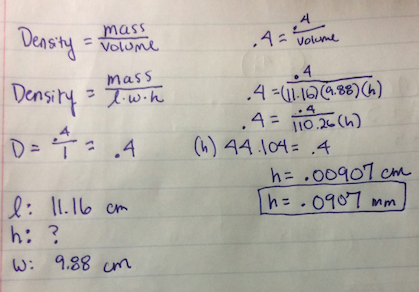 Density = mass / volume
Density = mass / l·w·h
D = .4 / 1 = .4
l: 11.16 cm
h: ?
w: 9.88 cm
.4 = .4 / volume
.4 = .4 / (11.16)(9.88)(h)
.4 = .4 / 110.26(h)
(h) 44.104 = .4
h = .00907 cm
h = .0907 mm